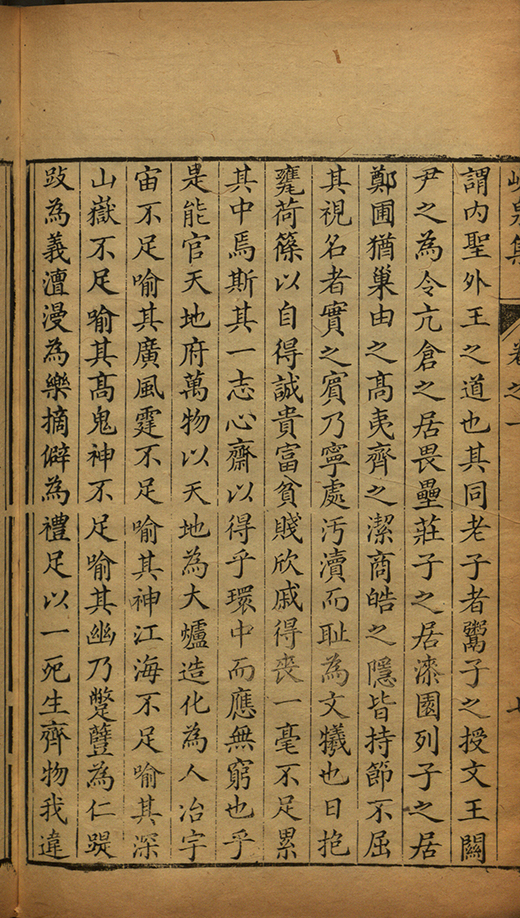 峴泉集
卷之一
七
謂内聖外王之道也其同老子者鬻子之授文王關
尹之為令亢倉之居畏壘莊子之居漆園列子之居
鄭圃猶巢由之髙夷齊之潔商皓之隱皆持節不屈
其視名者實之賓乃寧處汚瀆而耻為文犧也日抱
甕荷篠以自得誠貴富貧賤欣戚得喪一毫不足累
其中焉斯其一志心齋以得乎環中而應無窮也乎
是能官天地府萬物以天地為大爐造化為人冶宇
宙不足喻其廣風霆不足喻其神江海不足喻其深
山嶽不足喻其髙鬼神不足喻其幽乃蹩躠為仁踶
跂為義澶漫為樂摘僻為禮足以一死生齊物我違